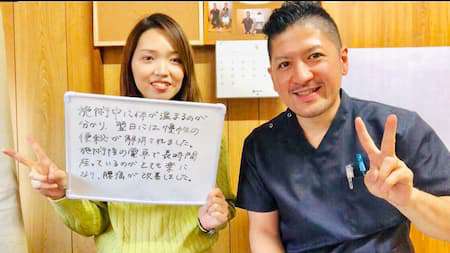 施術中に体が温まるのが
分かり、翌日には慢性の
便秘が解消されました。
施術後の電車で長時間
座っているのがとても楽に
なり、腰痛が改善しました。